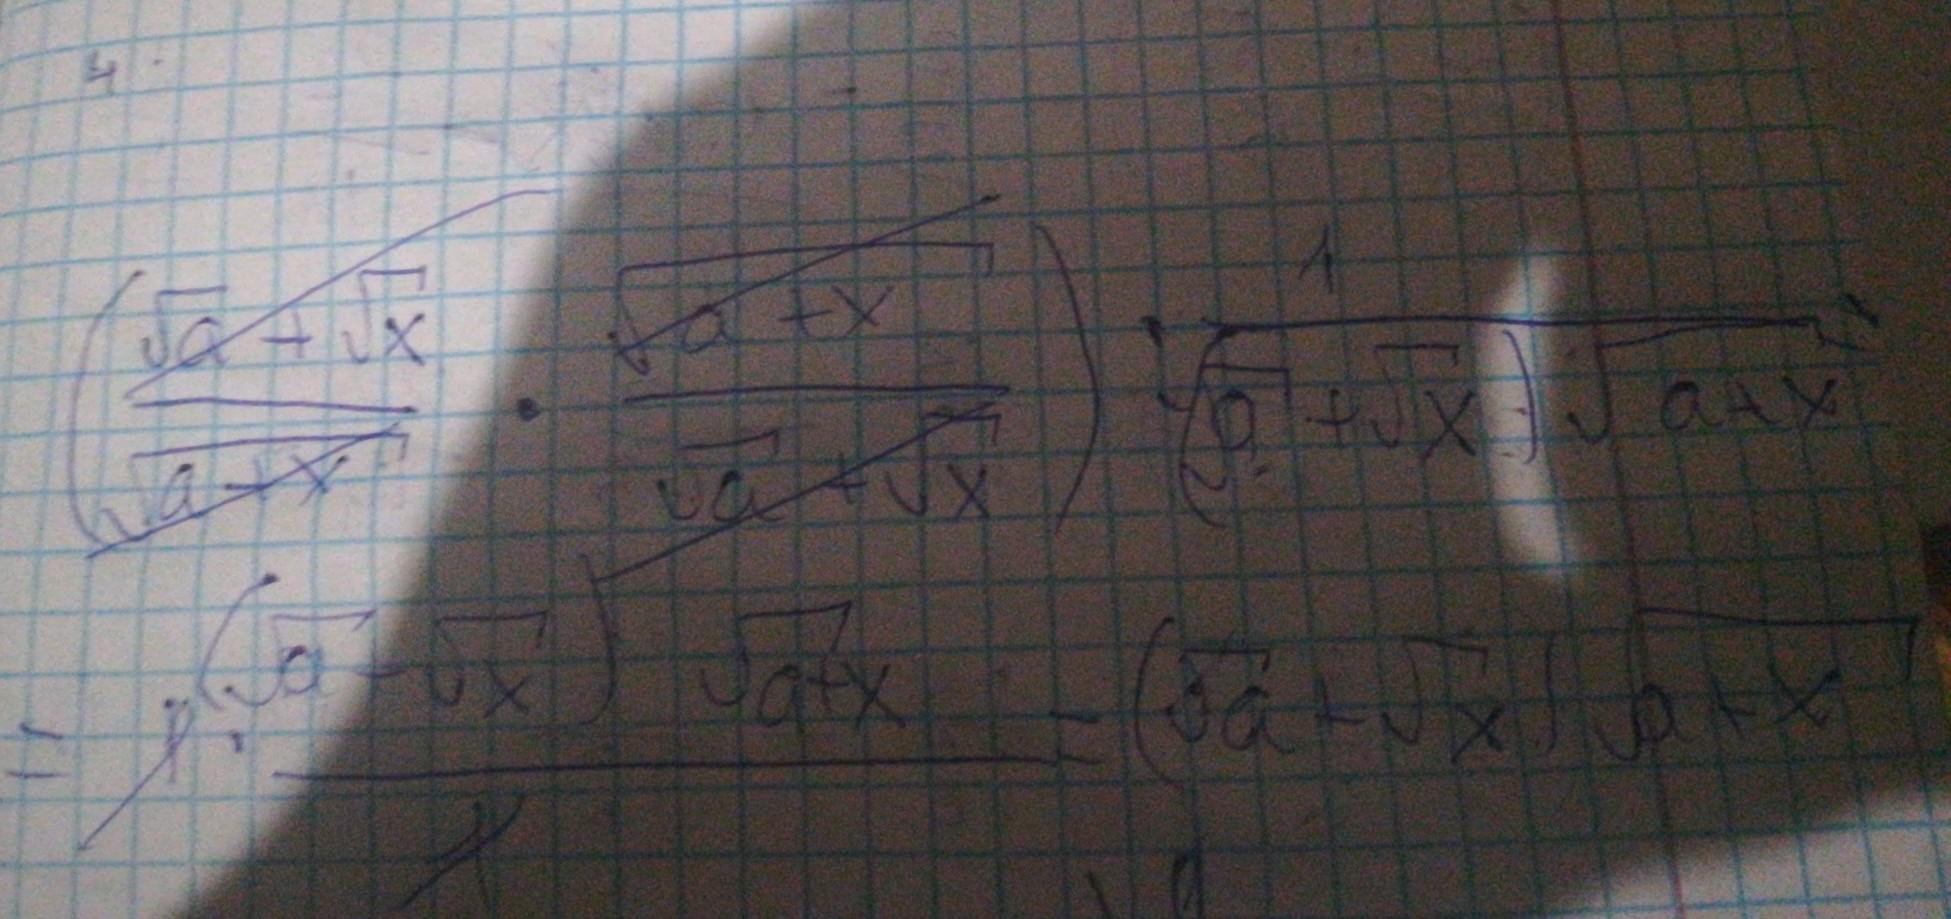 4.
(√a + √x / √(a+x) · √(a+x) / √a + √x) · 1 / (√a + √x) √(a+x)
= 1 · (√a - √x) √(a+x) / 1 = (√a + √x) √(a+x)